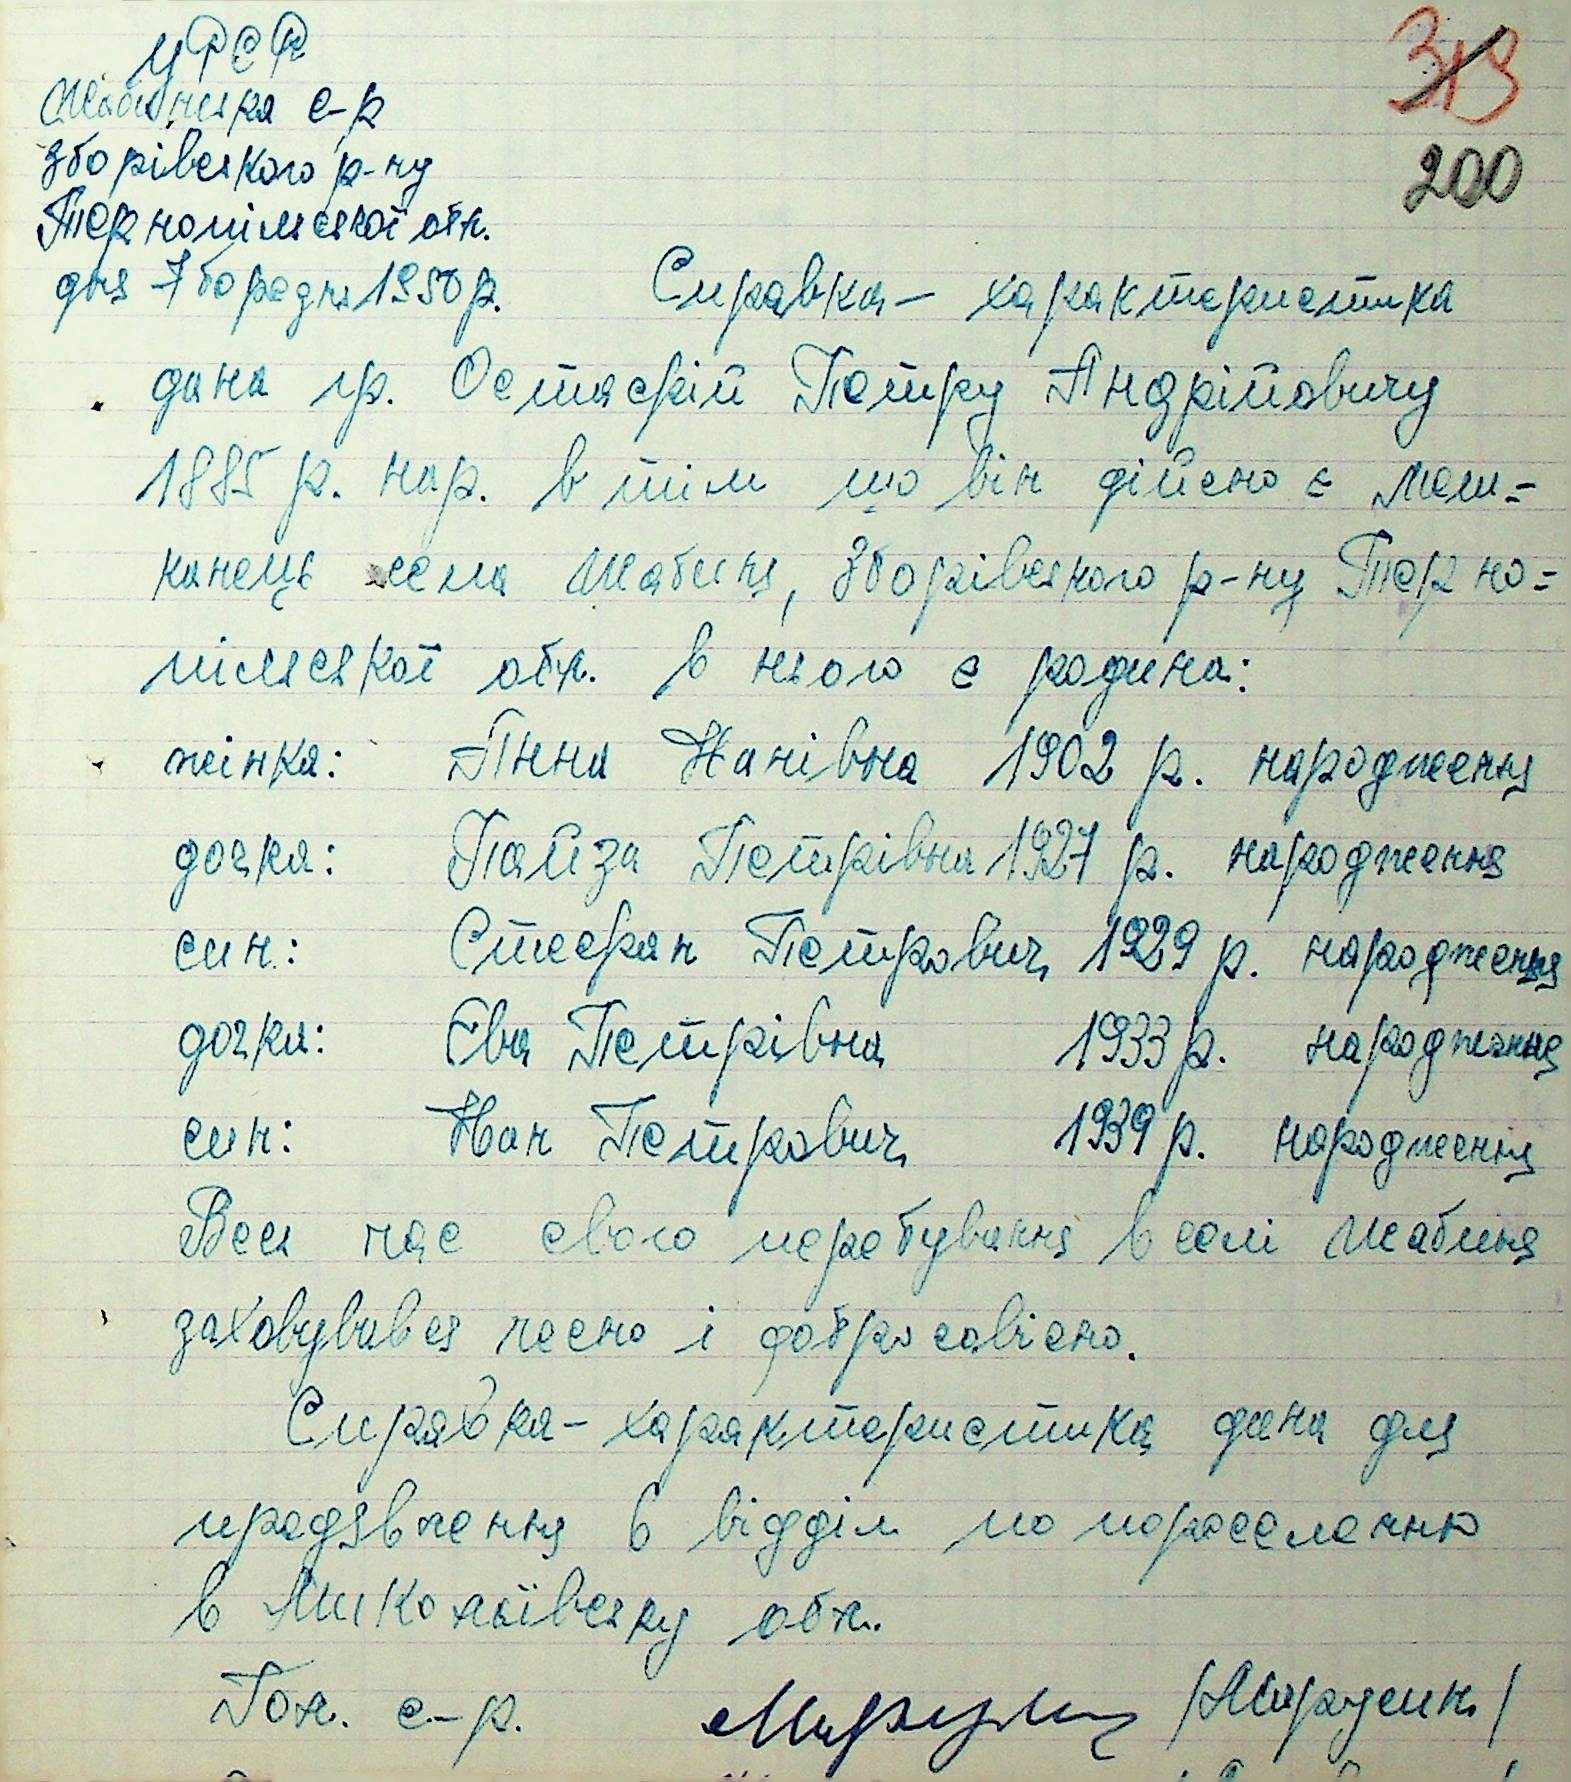 УРСР
Жабинська с-р
Зборівського р-ну
Тернопільської обл.
дня 7 бередня 1950 р.
319
200
Справка - характеристика
дана гр. Остафій Петру Андрійовичу
1885 р. нар. в тім що він дійсно є меш=
канець села Жабиня, Зборівського р-ну Терно=
пільської обл. в нього є родина:
жінка: Анна Іванівна 1902 р. народження
дочка: Пайза Петрівна 1927 р. народження
син: Стефан Петрович 1929 р. народження
дочка: Єва Петрівна 1933 р. народження
син: Іван Петрович 1939 р. народження
Весь час свого перебування в селі Жабиня
заховувався чесно і добросовісно.
Справка - характеристика дана для
предявлення в відділ по переселенню
в Миколаївську обл.
Гол. с-р.